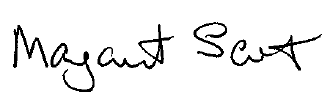 Margaret Scott